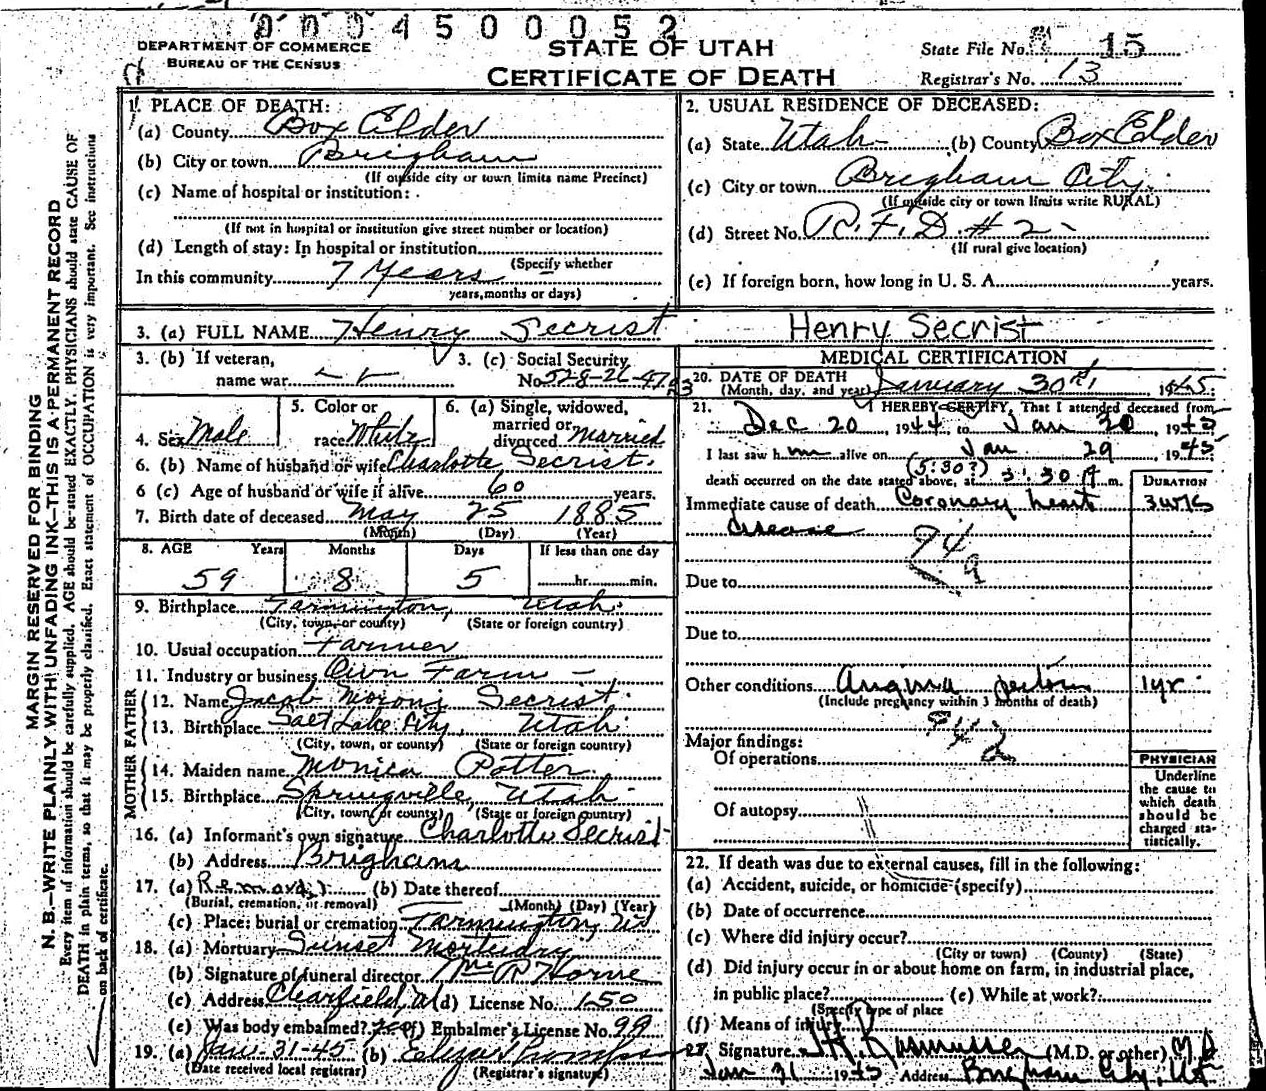 0004500052
DEPARTMENT OF COMMERCE
BUREAU OF THE CENSUS
STATE OF UTAH
CERTIFICATE OF DEATH
State File No. 15
Registrar's No. 13
MARGIN RESERVED FOR BINDING
N. B.—WRITE PLAINLY WITH UNFADING INK—THIS IS A PERMANENT RECORD
Every item of information should be carefully supplied. AGE should be stated EXACTLY. PHYSICIANS should state CAUSE OF
DEATH in plain terms, so that it may be properly classified. Exact statement of OCCUPATION is very important. See instructions
on back of certificate.
1. PLACE OF DEATH:
(a) County Box Elder
(b) City or town Brigham
(If outside city or town limits name Precinct)
(c) Name of hospital or institution:
(If not in hospital or institution give street number or location)
(d) Length of stay: In hospital or institution
(Specify whether
In this community 7 Years
years, months or days)
2. USUAL RESIDENCE OF DECEASED:
(a) State Utah (b) County Box Elder
(c) City or town Brigham City
(If outside city or town limits write RURAL)
(d) Street No. R.F.D. # 2
(If rural give location)
(e) If foreign born, how long in U. S. A. years.
3. (a) FULL NAME Henry Secrist Henry Secrist
3. (b) If veteran,
name war
3. (c) Social Security
No. 528-26-4703
4. Sex Male
5. Color or
race White
6. (a) Single, widowed,
married or
divorced married
6. (b) Name of husband or wife Charlotte Secrist
6 (c) Age of husband or wife if alive 60 years.
7. Birth date of deceased May 25 1885
(Month) (Day) (Year)
8. AGE Years Months Days If less than one day
59 8 5 hr. min.
9. Birthplace Farmington, Utah
(City, town, or county) (State or foreign country)
10. Usual occupation Farmer
11. Industry or business Own Farm
FATHER
12. Name Jacob Moroni Secrist
13. Birthplace Salt Lake City, Utah
(City, town, or county) (State or foreign country)
MOTHER
14. Maiden name Monica Potter
15. Birthplace Springville, Utah
(City, town, or county) (State or foreign country)
16. (a) Informant's own signature Charlotte Secrist
(b) Address Brigham
17. (a) Removal (b) Date thereof
(Burial, cremation, or removal) (Month) (Day) (Year)
(c) Place: burial or cremation Farmington, Ut
18. (a) Mortuary Sunset Mortuary
(b) Signature of funeral director Wm R Horne
(c) Address Clearfield, Ut (d) License No. 150
(e) Was body embalmed? yes (f) Embalmer's License No. 99
19. (a) Jan-31-45 (b) Eliza Thompson
(Date received local registrar) (Registrar's signature)
MEDICAL CERTIFICATION
20. DATE OF DEATH
(Month, day, and year) January 30th, 1945
21. I HEREBY CERTIFY, That I attended deceased from
Dec 20, 1944, to Jan 30, 1945
I last saw him alive on Jan 29 1945
(5:30?)
death occurred on the date stated above, at 3:30 P m.
DURATION
Immediate cause of death Coronary heart 3 wks
disease
94
a
Due to
Due to
Other conditions Angina pectoris 1 yr
(Include pregnancy within 3 months of death)
Major findings:
Of operations
Of autopsy
PHYSICIAN
Underline
the cause to
which death
should be
charged sta-
tistically.
22. If death was due to external causes, fill in the following:
(a) Accident, suicide, or homicide (specify)
(b) Date of occurrence
(c) Where did injury occur?
(City or town) (County) (State)
(d) Did injury occur in or about home on farm, in industrial place,
in public place? (e) While at work?
(Specify type of place
(f) Means of injury
Signature Rasmussen (M.D. or other) M D
Jan 31 1945 Address Brigham City, Ut